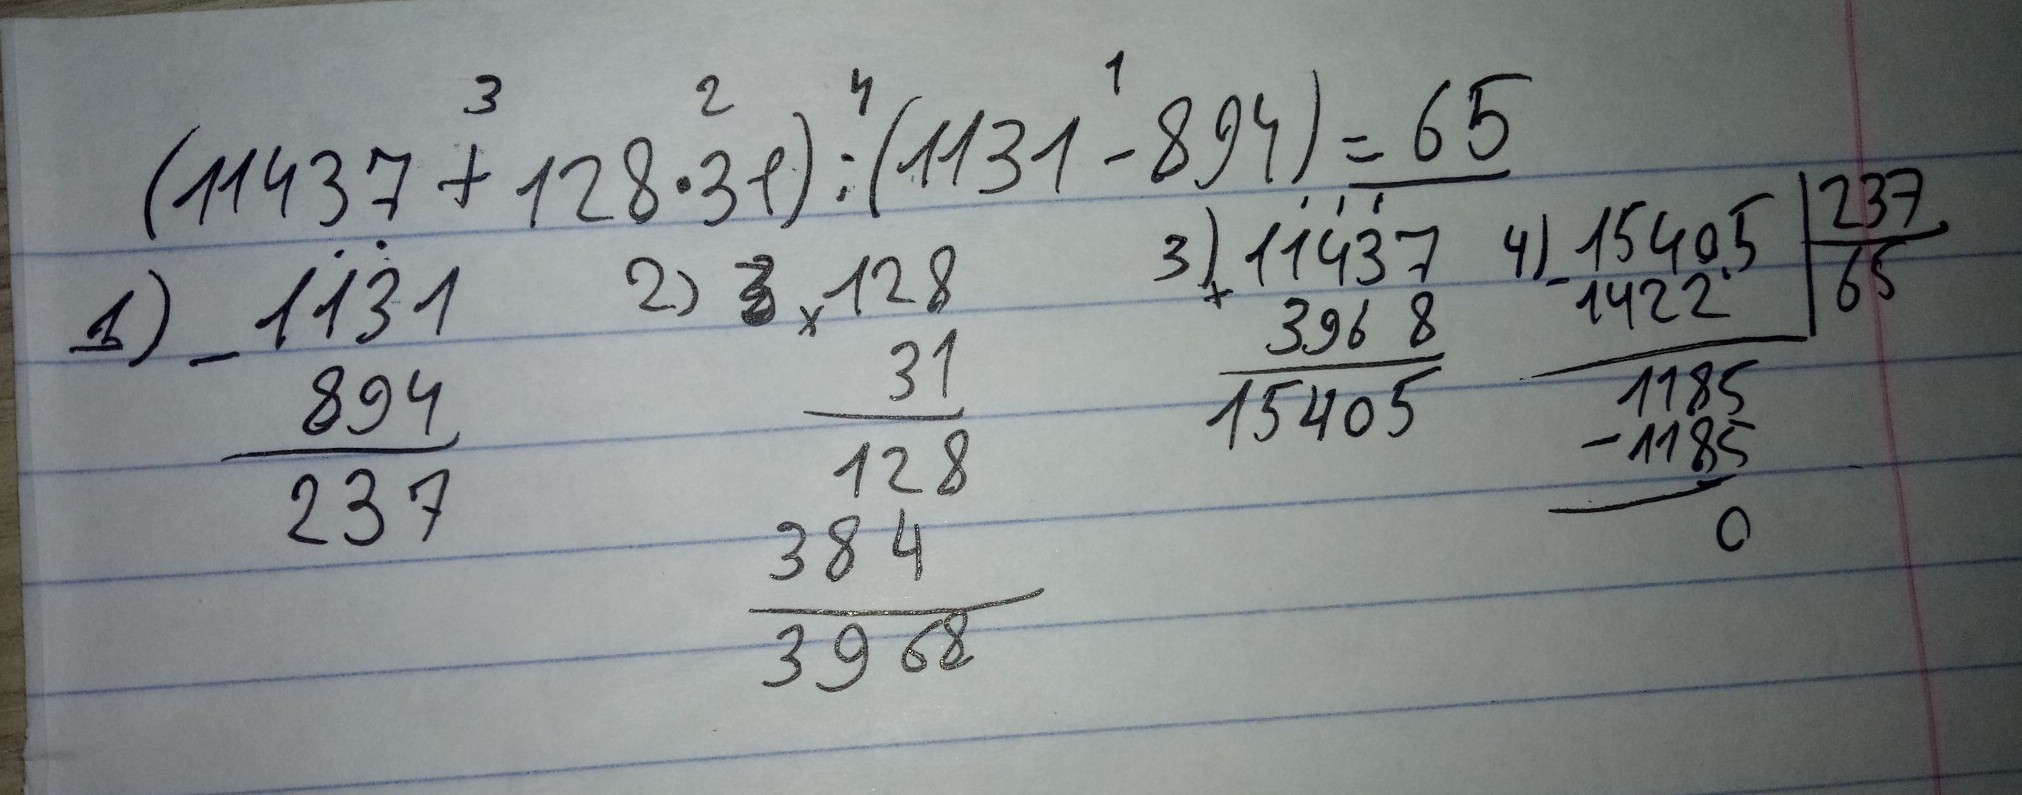 3 2 4 1
(11437 + 128·31) : (1131 - 894) = 65
1) - 1131
894
237
2) x 128
31
128
384
3968
3) + 11437
3968
15405
4) - 15405 | 237
1422 | 65
1185
- 1185
0